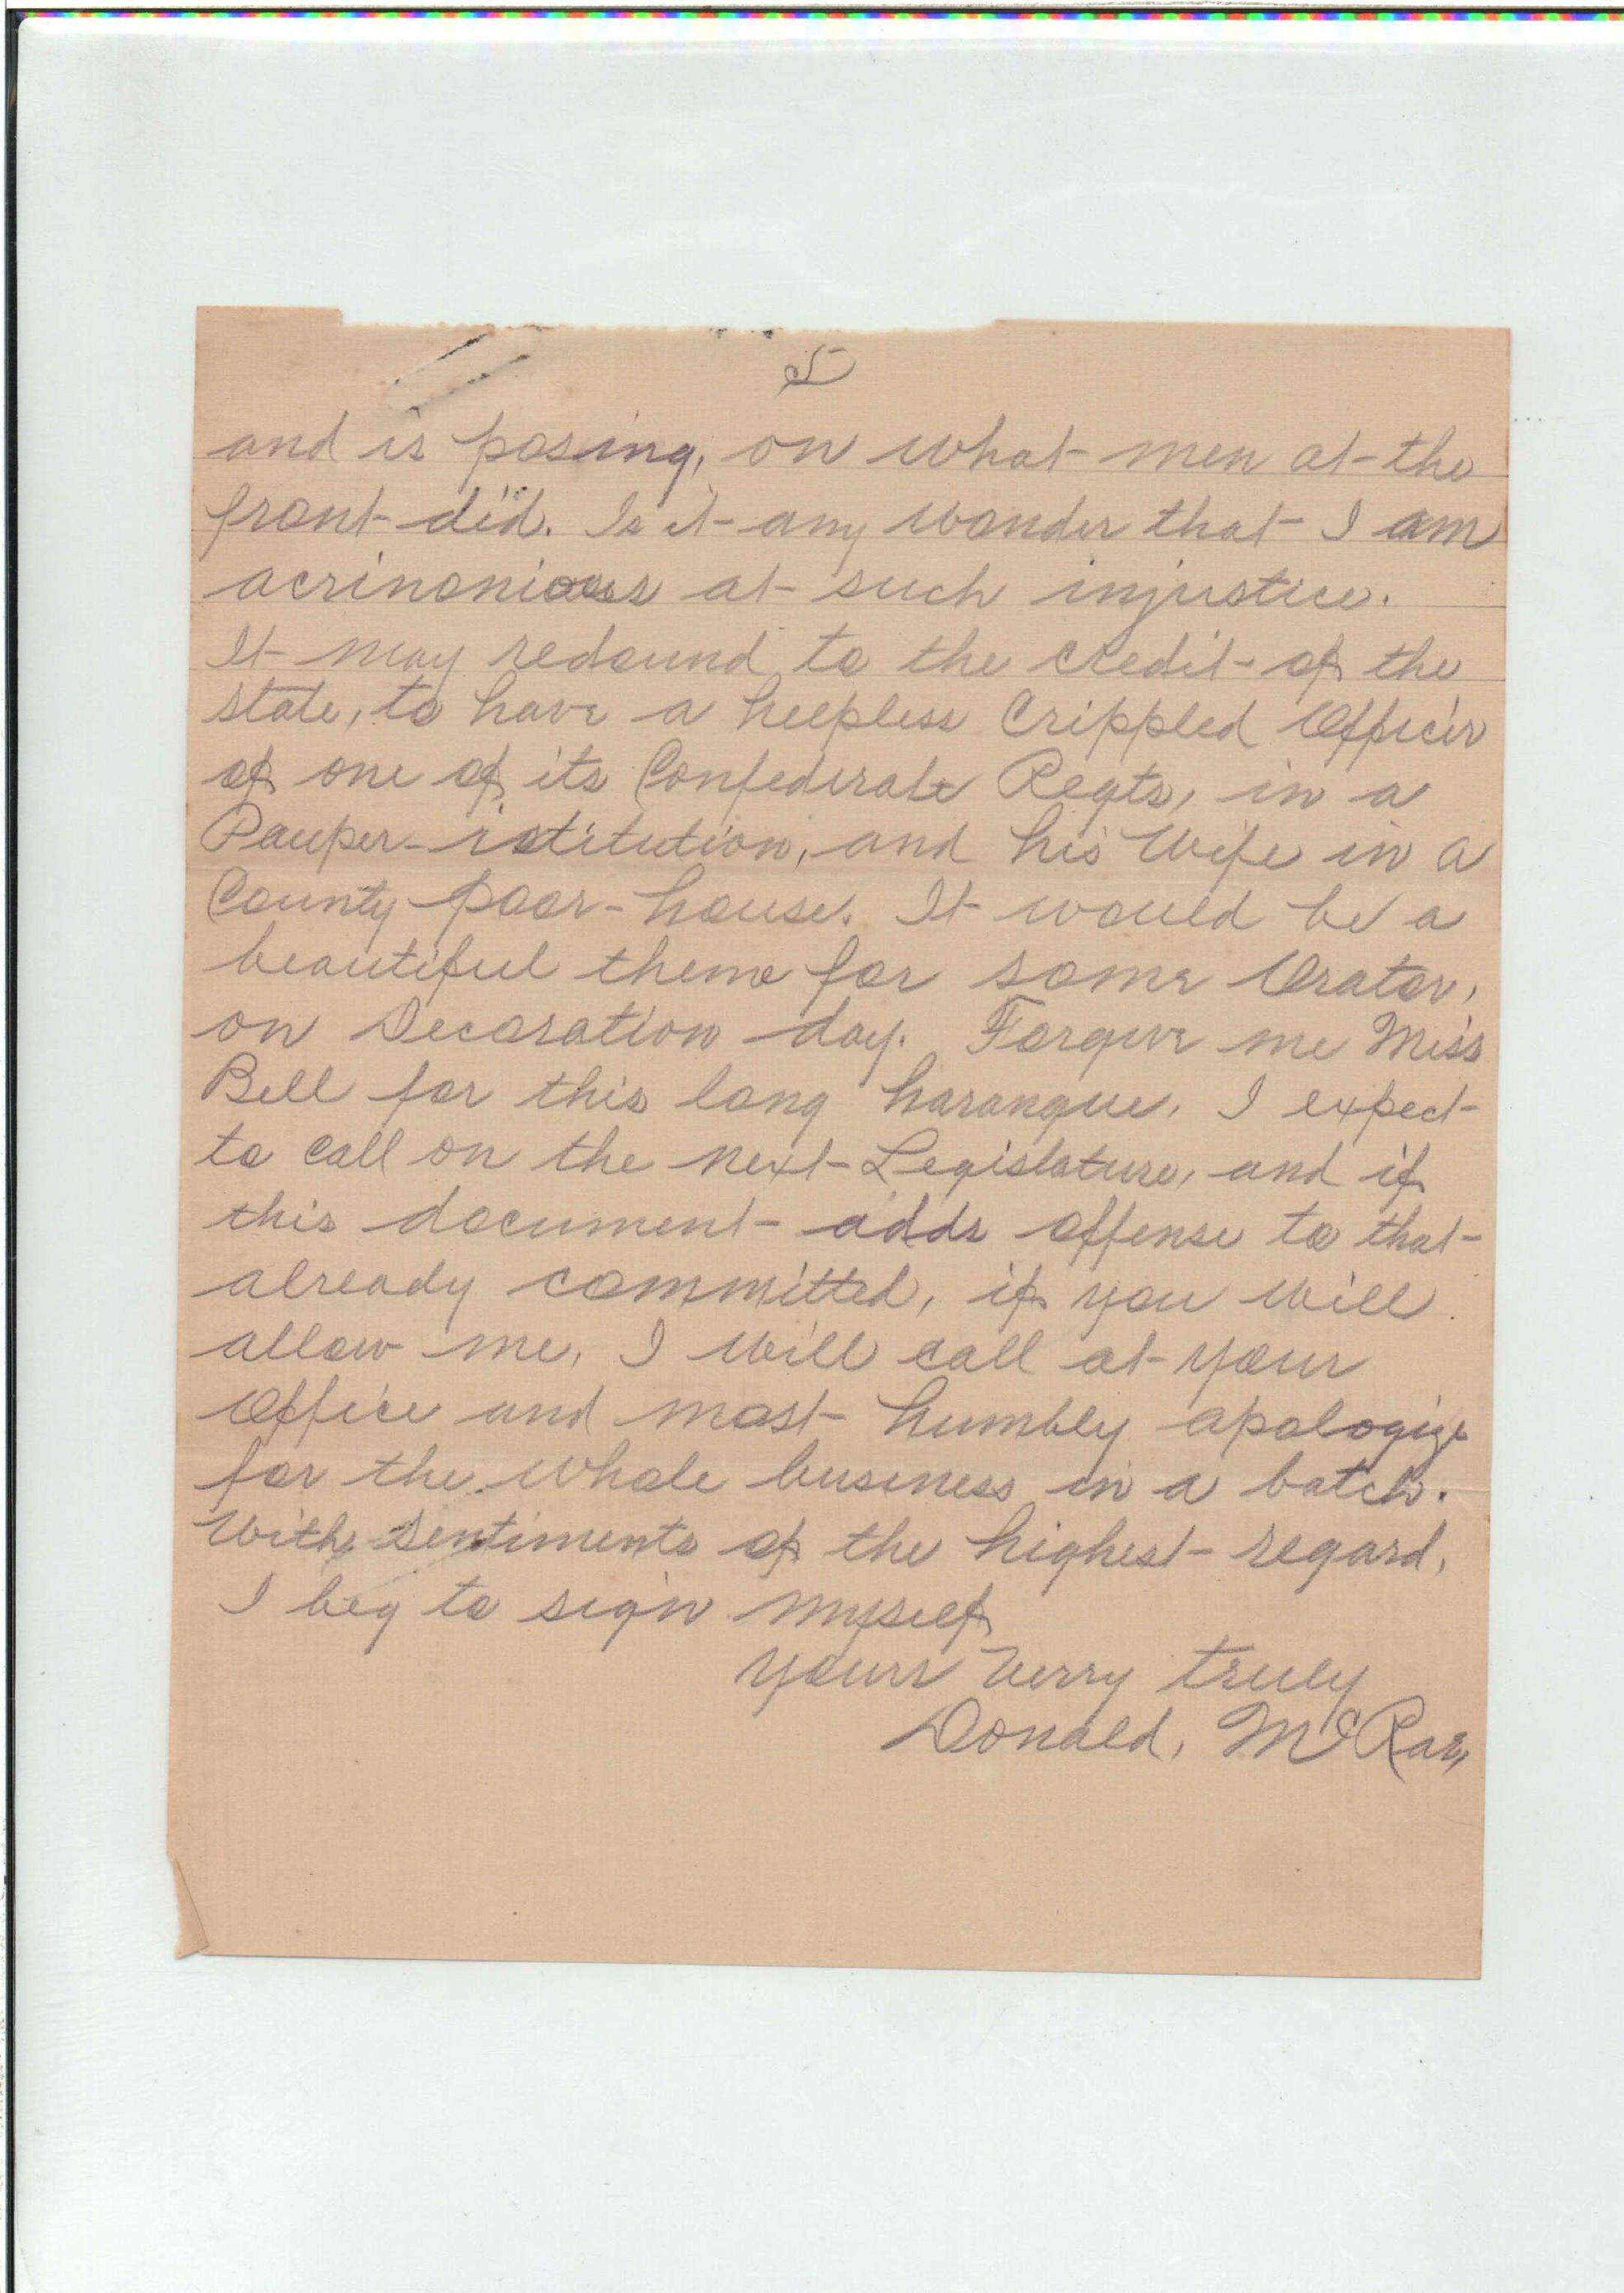 5
and is posing, on what men at the
front did. Is it any wonder that I am
acrinonious at such injustice.
It may redound to the credit of the
state, to have a helpless Crippled Officer
of one of its Confederate Regts, in a
Pauper-istitution, and his Wife in a
County poor-house. It would be a
beautiful theme for some Orator,
on Decoration day. Forgive me Miss
Bell for this long harangue. I expect
to call on the next Legislature, and if
this document adds offense to that
already committed, if you will
allow me, I will call at your
Office and most humbly apologize
for the whole business in a batch.
With sentiments of the highest regard,
I beg to sign myself
Yours Verry truly
Donald, McRae,